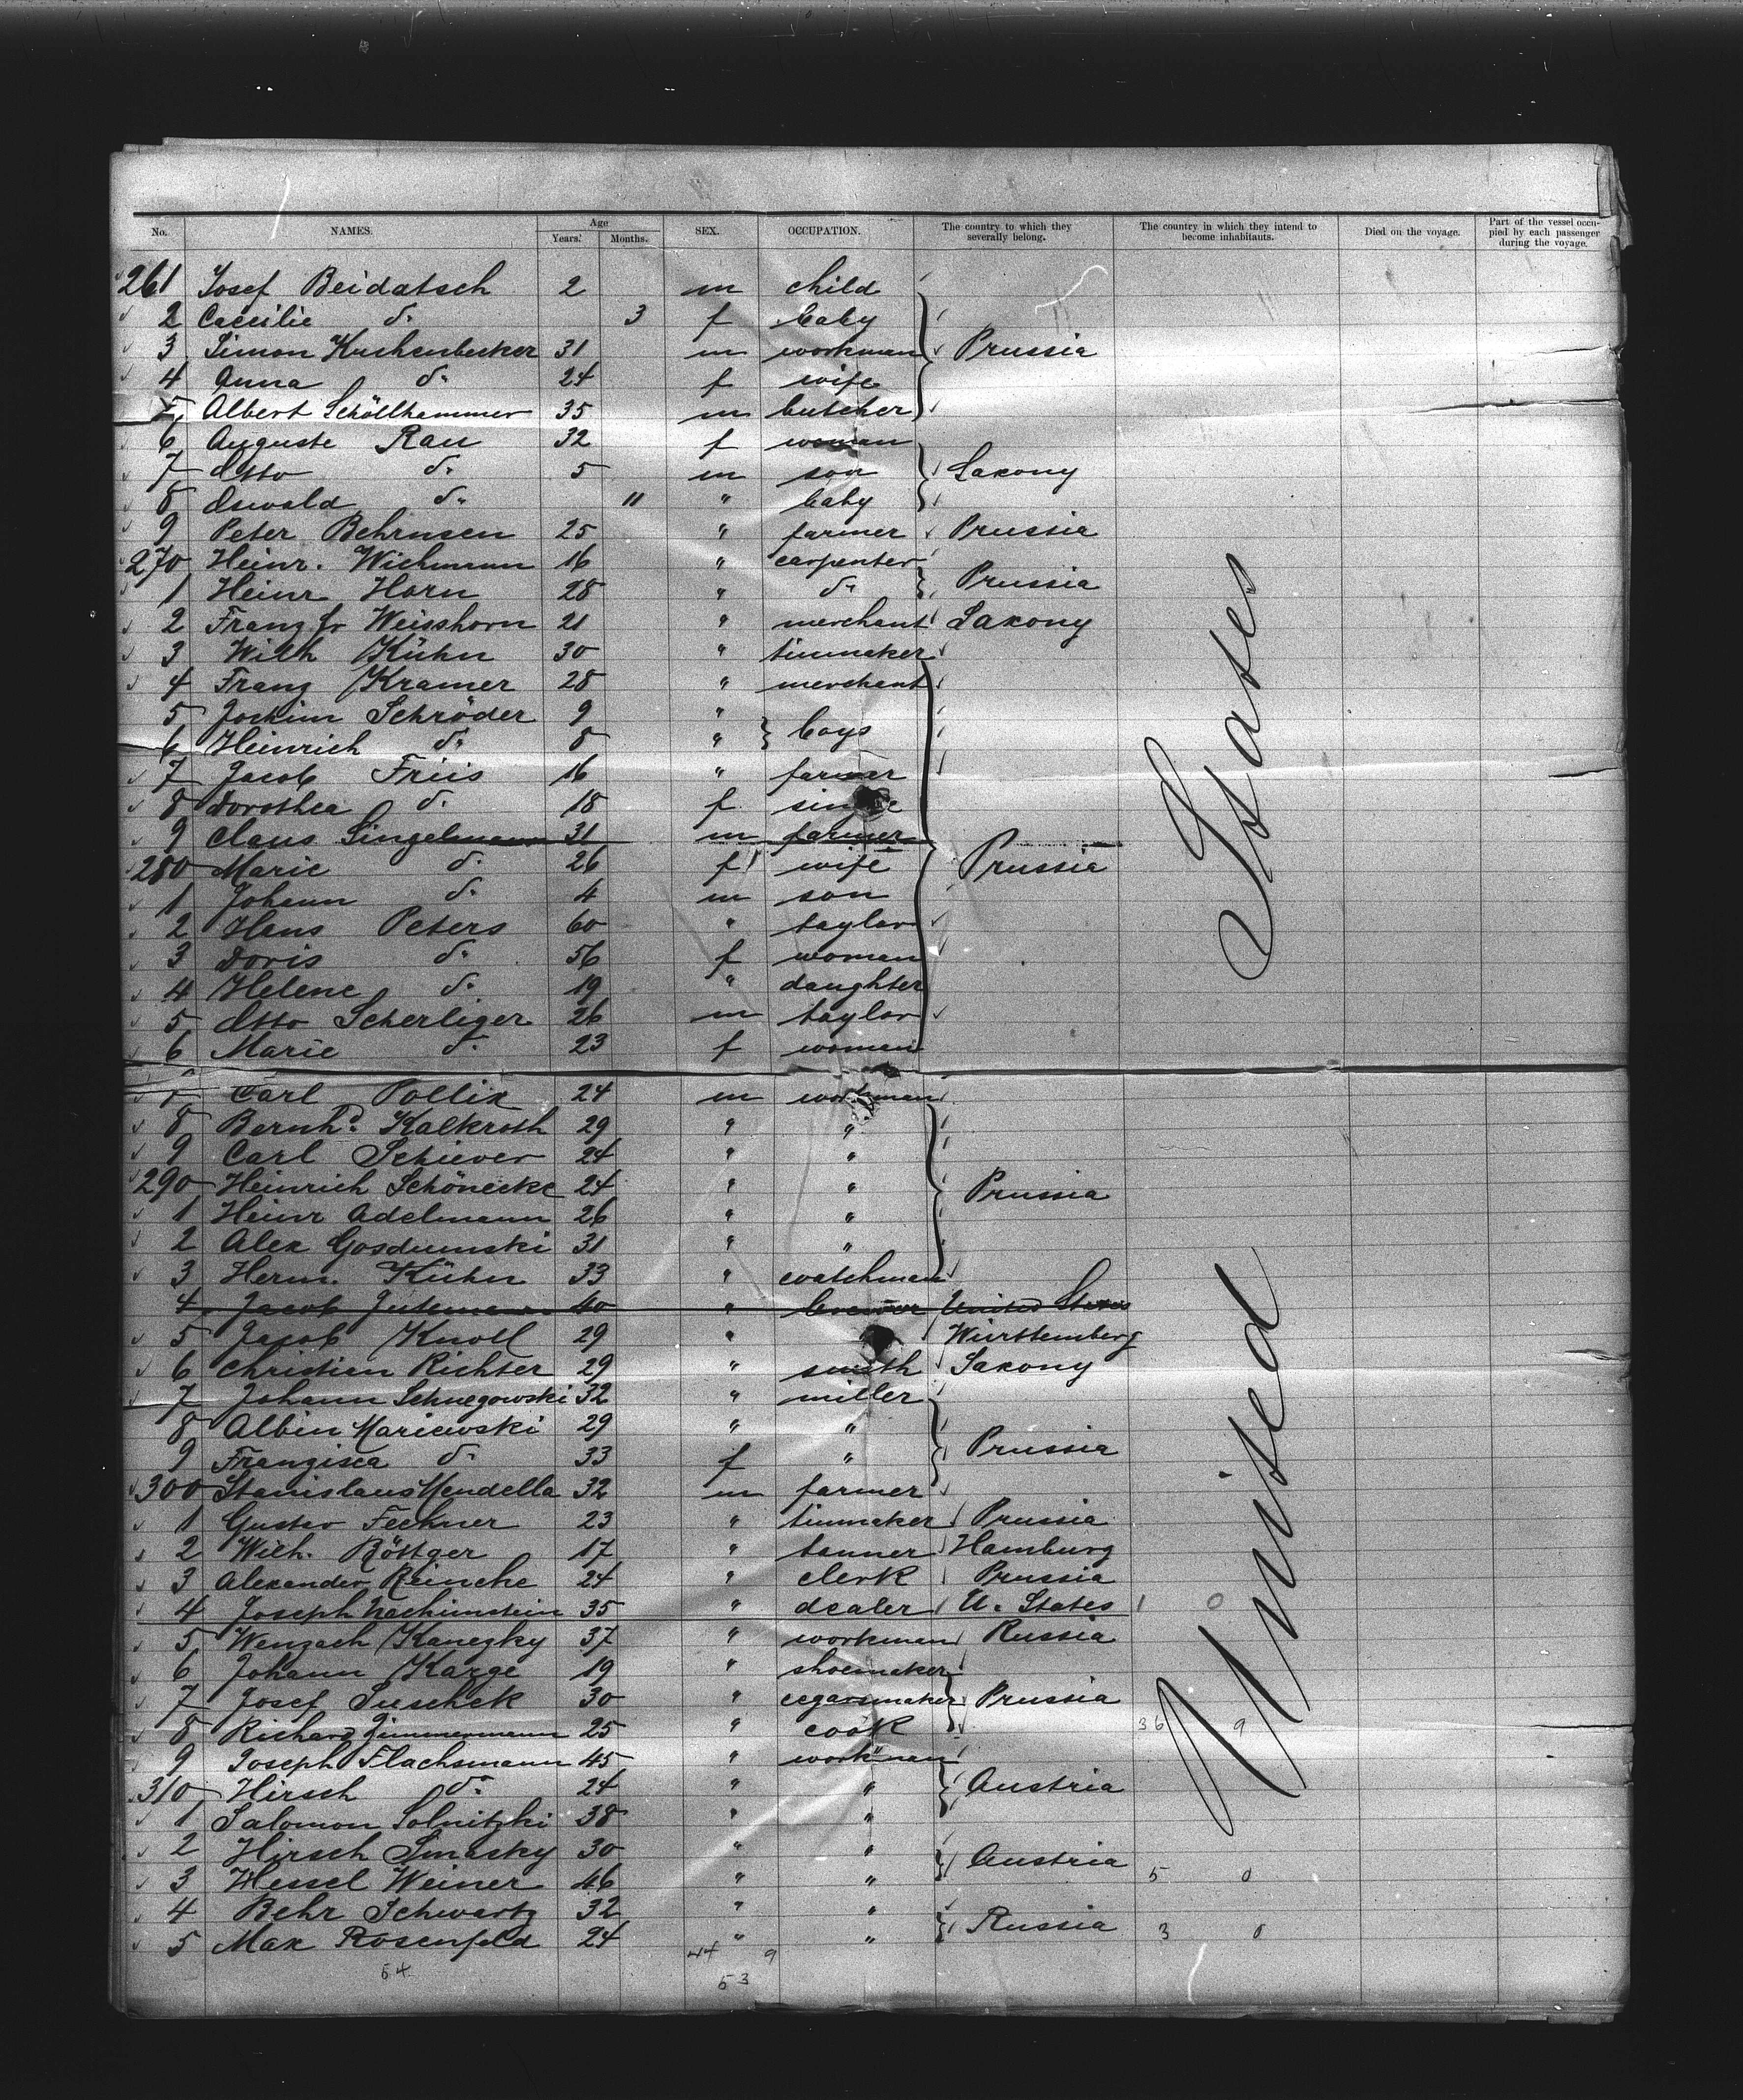 No. NAMES. Age Years. Months. SEX. OCCUPATION. The country to which they severally belong. The country in which they intend to become inhabitants. Died on the voyage. Part of the vessel occupied by each passenger during the voyage.
261 Josef Beidatsch 2 m child
2 Caecilie do 3 f baby
3 Simon Kuchenbecker 31 m workman Prussia
4 Anna do 24 f wife
5 Albert Schöllhammer 35 m butcher
6 Auguste Rau 32 f woman
7 Otto do 5 m son Saxony
8 Oswald do 11 " baby
9 Peter Behrnsen 25 " farmer Prussia
270 Heinr. Wichmann 16 " carpenter
1 Heinr Horn 28 " do Prussia
2 Franz Fr Weisshorn 21 " merchant Saxony
3 Wilh Kühn 30 " tinmaker
4 Franz Kramer 28 " merchant
5 Jochim Schröder 9 " boys
6 Heinrich do 8 "
7 Jacob Friis 16 " farmer
8 Dorothea do 18 f single
9 Claus Singelmann 31 m farmer
280 Marie do 26 f wife Prussia
1 Johann do 4 m son
2 Hans Peters 60 " taylor
3 Doris do 56 f woman
4 Helene do 19 " daughter
5 Otto Scherliger 26 m taylor
6 Marie do 23 f woman
7 Carl Pollix 24 m workman
8 Bernhd. Kalkroth 29 " "
9 Carl Schiever 24 " "
290 Heinrich Schönecke 24 " " Prussia
1 Heinr Adelmann 26 " "
2 Alex Gosdumski 31 " "
3 Herm. Kühn 33 " watchman
4 Jacob 40 " brewer United States
5 Jacob Knoll 29 " Württemberg
6 Christian Richter 29 " smith Saxony
7 Johann Schnegowski 32 " miller
8 Albin Mariewski 29 " "
9 Franzisca do 33 f " Prussia
300 Stanislaus Mendella 32 m farmer
1 Gustav Fechner 23 " tinmaker Prussia
2 Wilh. Röttger 17 " tanner Hamburg
3 Alexander Reincke 24 " clerk Prussia
4 Joseph Nachimstein 35 " dealer U. States 1 0
5 Wenzach Kanezky 37 " workman Russia
6 Johann Karge 19 " shoemaker
7 Josef Suschek 30 " cegarsmaker Prussia
8 Richard Zimmermann 25 " cook 36 9
9 Joseph Flachsmann 45 " workman
310 Hirsch do 24 " " Austria
1 Salomon Solnitzki 38 " "
2 Hirsch Smasky 30 " " Austria
3 Wessel Weiner 46 " " 5 0
4 Behr Schwartz 32 " " Russia
5 Max Rosenfeld 24 " " 3 0
44 9
54 53
United States